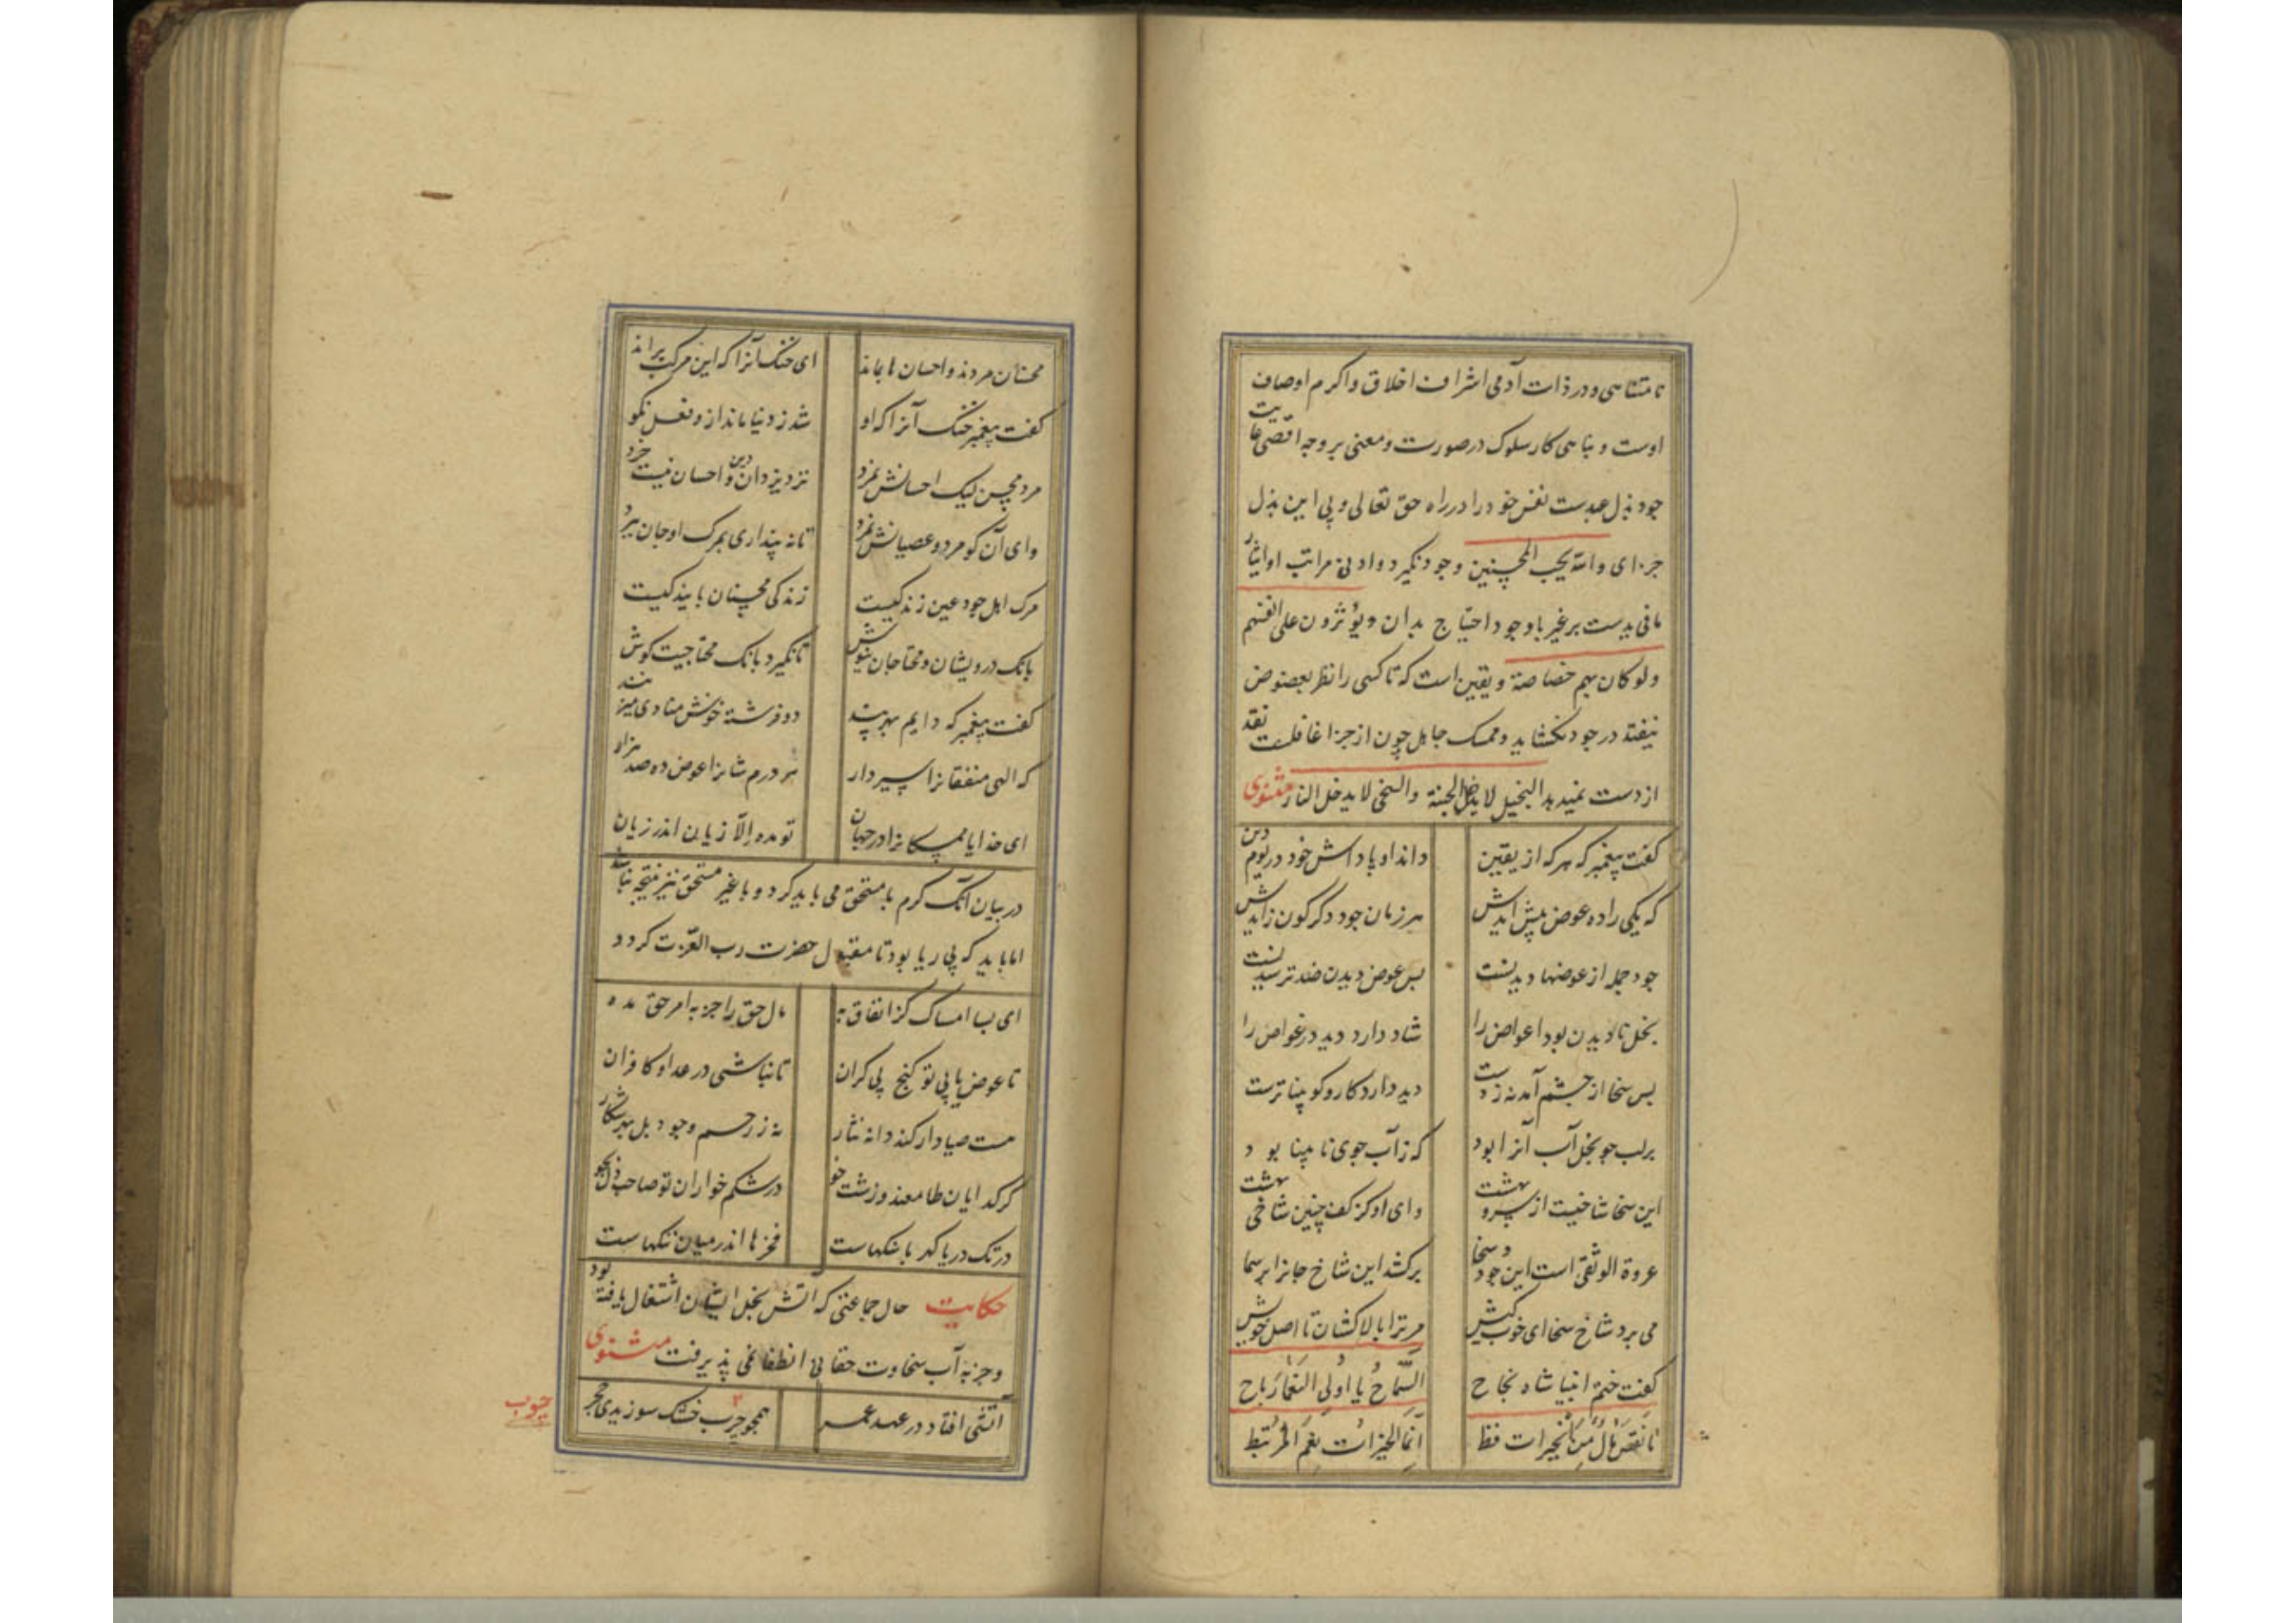 نامتناهی و در ذات آدمی اشراف اخلاق و اکرم اوصاف
اوست و بناهی کار سلوک در صورت و معنی بر وجه اقصی غایت
جود بذل عبدست نفس خود را در راه حق تعالی و پی این بذل
جزای والله یحب المحسنین وجود نگیرد و ادنی مراتب او ایثار
مافی یدست بر غیر با وجود احتیاج بدان ویؤثرون علی انفسهم
ولو کان بهم خصاصة و یقین است که تا کسی را نظر بعوض
نیفتد در جود نکشاید و ممسک جاهل چون از جزا غافلست نقد
از دست نمیدهد البخیل لا یدخل الجنة والسخی لا یدخل النار مثنوی
کفت پیغمبر که هر که از یقین داند او پاداش خود در یوم دین
که یکی را ده عوض پیش آیدش هر زمان جود دکرکون زایدش
جود جمله از عوضها دیدنست بس عوض دیدن ضد ترسیدنست
بخل نادیدن بود اعواض را شاد دارد دید در غواص را
بس سخا از چشم آمد نه ز دست دید دارد کار و کو بیناترست
بر لب جو بخل آب آنرا بود که ز آب جوی نابینا بود
این سخا شاخیست از سرو بهشت وای او کز کف چنین شاخی بهشت
عروة الوثقی است این جود و سخا برکشد این شاخ جانرا بر سما
می برد شاخ سخا ای خوب کیش مر ترا بالاکشان تا اصل خویش
کفت ختم انبیا شاه نجاح السماح یا اولی النعما رباح
ما نقص مال من الخیرات قط انما الخیرات نعم المرتبط
محسنان مردند و احسان ها بماند ای خنک آنرا که این مرکب براند
کفت پیغمبر خنک آنرا که او شد ز دنیا ماند ازو فعل نکو
مرد محسن لیک احسانش نمرد نزد یزدان دین و احسان نیست خرد
وای آن کو مرد و عصیانش نمرد تا نه پنداری بمرک او جان ببرد
مرک اهل جود عین زندکیست زندکی محسنان پایندکیست
بانک درویشان و محتاجان بنوش تا نکیرد بانک محتاجیت کوش
کفت پیغمبر که دایم بهر پند دو فرشته خوش منادی میزنند
که الهی منفقانرا سیر دار هر درم شانرا عوض ده صد هزار
ای خدایا ممسکانرا در جهان تو مده الا زیان اندر زیان
در بیان آنک کرم با مستحق می باید کرد و با غیر مستحق نیز نتیجه نباشد
اما باید که بی ریا بود تا مقبول حضرت رب العزت کردد
ای بسا امساک کز انفاق به مال حق را جز به امر حق مده
تا عوض یابی تو کنج بی کران تا نباشی در عداد کافران
هست صیاد ار کند دانه نثار نه ز رحم و جود بل بهر شکار
کر کدایان طامعند و زشت خو در شکم خواران تو صاحب دل بجو
در تک دریا کهر با سنکهاست فخرها اندر میان ننکهاست
حکایت حال جماعتی که آتش بخل ایشان اشتغال یافته بود
و جز به آب سخاوت حقانی انطفا نمی پذیرفت مثنوی
آتشی افتاد در عهد عمر همچو چرب خشک سوزیدی حجر
چوب